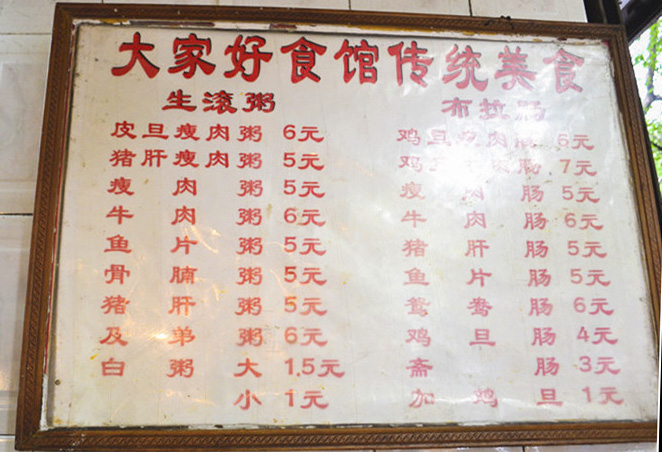 大家好食馆传统美食
生滚粥
布拉肠
皮旦瘦肉粥 6元
猪肝瘦肉粥 5元
瘦肉粥 5元
牛肉粥 6元
鱼片粥 5元
骨腩粥 5元
猪肝粥 5元
及弟粥 6元
白粥 大 1.5元
小 1元
鸡旦 肉肠 6元
鸡 肠 7元
瘦肉肠 5元
牛肉肠 6元
猪肝肠 5元
鱼片肠 5元
鸳鸯肠 6元
鸡旦肠 4元
斋肠 3元
加鸡旦 1元